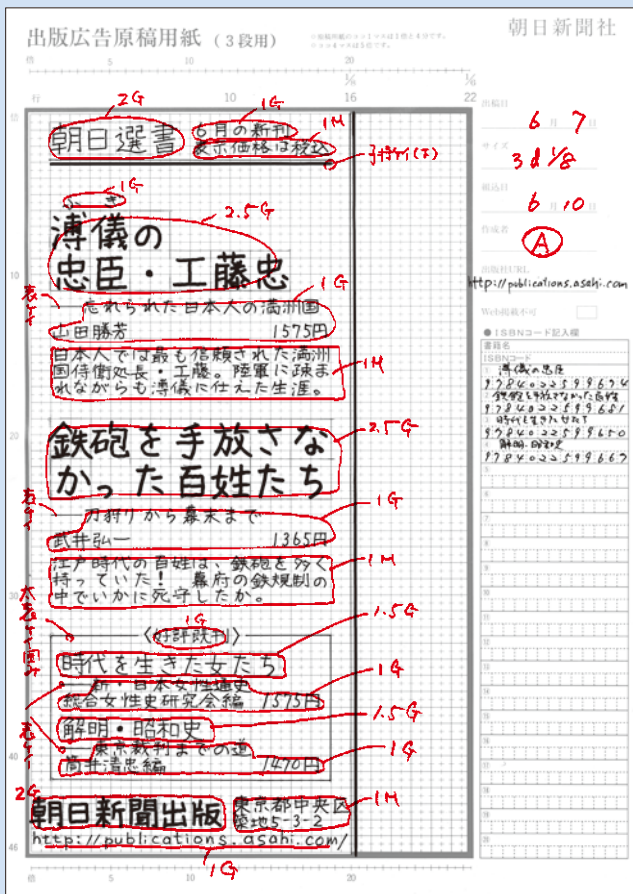 出版広告原稿用紙（3段用）
朝日新聞社
倍 5 10 20
行 10 16 22
朝日選書
2G
6月の新刊
1G
表示価格は税込
1M
子持ケイ(下)
ふ ぎ
1G
溥儀の
忠臣・工藤忠
2.5G
表ケイ
忘れられた日本人の満洲国
山田勝芳 1575円
1G
日本人では最も信頼された満洲
国侍衛処長・工藤。陸軍に疎ま
れながらも溥儀に仕えた生涯。
1M
鉄砲を手放さな
かった百姓たち
2.5G
表ケイ
刀狩りから幕末まで
武井弘一 1365円
1G
江戸時代の百姓は、鉄砲を多く
持っていた！ 幕府の鉄規制の
中でいかに死守したか。
1M
太表ケイ囲み
〈好評既刊〉
1G
時代を生きた女たち
1.5G
新・日本女性通史
総合女性史研究会編 1575円
1G
解明・昭和史
1.5G
表ケイ
東京裁判までの道
筒井清忠編 1470円
1G
朝日新聞出版
2G
東京都中央区
築地5-3-2
1M
http://publications.asahi.com/
1G
10
20
30
40
46
倍 5 10 20
出稿日
6月7日
サイズ
3d 1/8
6月10日
作成者
A
出版社URL
http://publications.asahi.com
Web掲載不可
●ISBNコード記入欄
書籍名
ISBNコード
溥儀の忠臣
9784022599674
鉄砲を手放さなかった百姓
9784022599681
時代を生きた女たち
9784022599650
解明・昭和史
9784022599667